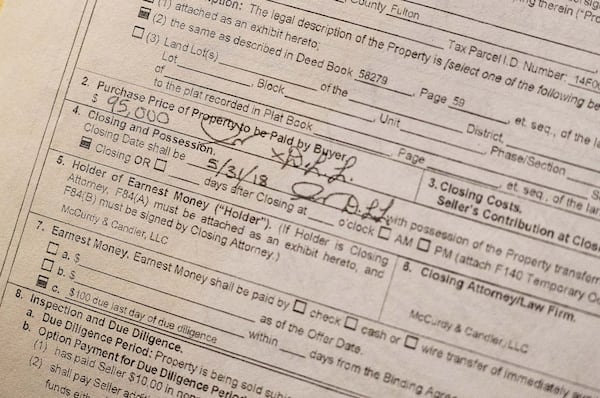 County Fulton
ption: The legal description of the Property is [select one of the following be
Tax Parcel I.D. Number: 14F00
(1) attached as an exhibit hereto;
(2) the same as described in Deed Book 58279, Page 59, et. seq., of the la
(3) Land Lot(s)
Lot, Block, Unit, Phase/Section
of of the District,
to the plat recorded in Plat Book, Page, et. seq., of the lan
2. Purchase Price of Property to be Paid by Buyer.
$ 95,000
D.L.L.
3. Closing Costs.
Seller's Contribution at Clos
4. Closing and Possession.
Closing Date shall be 5/31/18 D.L.L. with possession of the Property transferr
Closing OR days after Closing at o'clock AM PM (attach F140 Temporary Oc
5. Holder of Earnest Money ("Holder"). (If Holder is Closing
Attorney, F84(A) must be attached as an exhibit hereto, and
F84(B) must be signed by Closing Attorney.)
McCurdy & Candler, LLC
6. Closing Attorney/Law Firm.
McCurdy & Candler, LLC
7. Earnest Money. Earnest Money shall be paid by check cash or wire transfer of immediately
a. $
b. $ as of the Offer Date.
c. $100 due last day of due diligence within days from the Binding Agre
8. Inspection and Due Diligence.
a. Due Diligence Period: Property is being sold subj
b. Option Payment for Due Diligence Period
(1) has paid Seller $10.00 in non
(2) shall pay Seller addi
funds eith